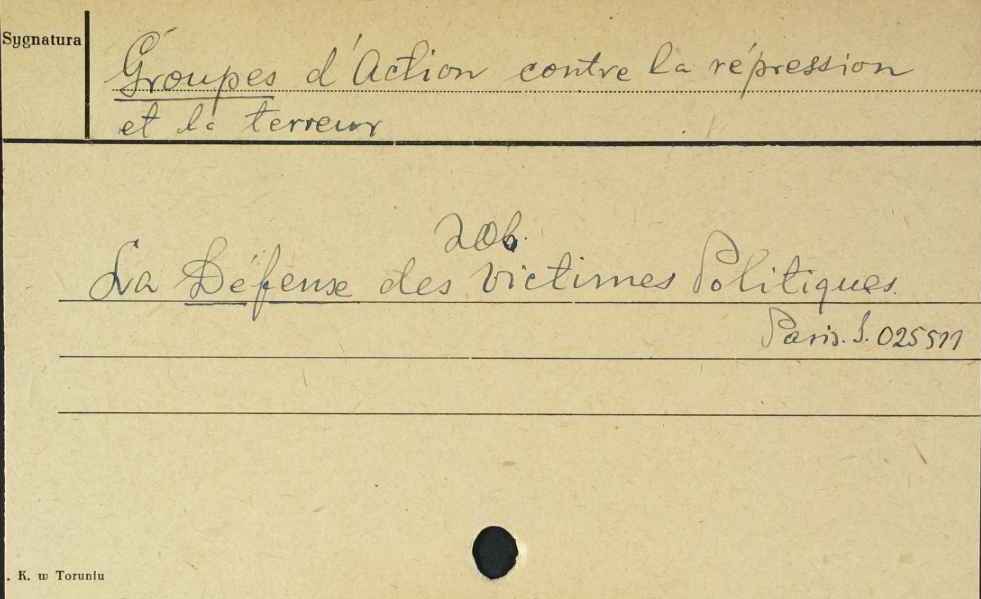 Sygnatura
Groupes d'Action contre la répression
et la terreur
zob.
La Défense des Victimes Politiques.
Paris. S. 025511
. K. w Toruniu